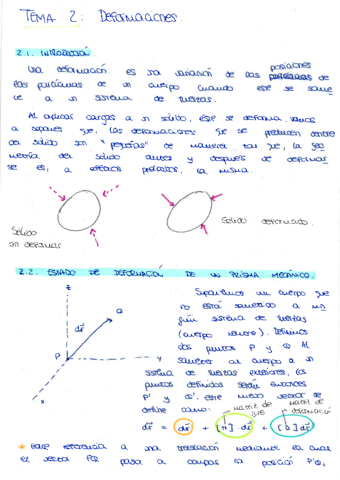 TEMA 2: Deformaciones.
2.1. INTRODUCCIÓN.
Una deformación es una variación de las posiciones de
las partículas de un cuerpo cuando este se some
te a un sistema de fuerzas.
Al aplicar cargas a un sólido, este se deforma, vamos
a suponer que, las deformaciones que se producen dentro
del sólido son "pequeñas" de manera tal que, la geo
metría del sólido antes y después de deformar
se es, a efectos prácticos, la misma.
Sólido
sin deformar
Sólido deformado
2.2. ESTADO DE DEFORMACIÓN DE UN PRISMA MECÁNICO.
z
Q
dr
P
y
x
Supondremos un cuerpo que
no está sometido a nin
gún sistema de fuerzas
(cuerpo neutro). Definimos
dos puntos P y Q. Al
someter al cuerpo a un
sistema de fuerzas exteriores, los
puntos definidos serán entonces
P' y Q'. Este nuevo vector se
define como:
matriz de giro
matriz de deformación
dr' = dr + [ ] · dr + [D] dr
* Hace referencia a una traslación mediante la cual
el vector PQ pasa a ocupar la posición P'Q₁